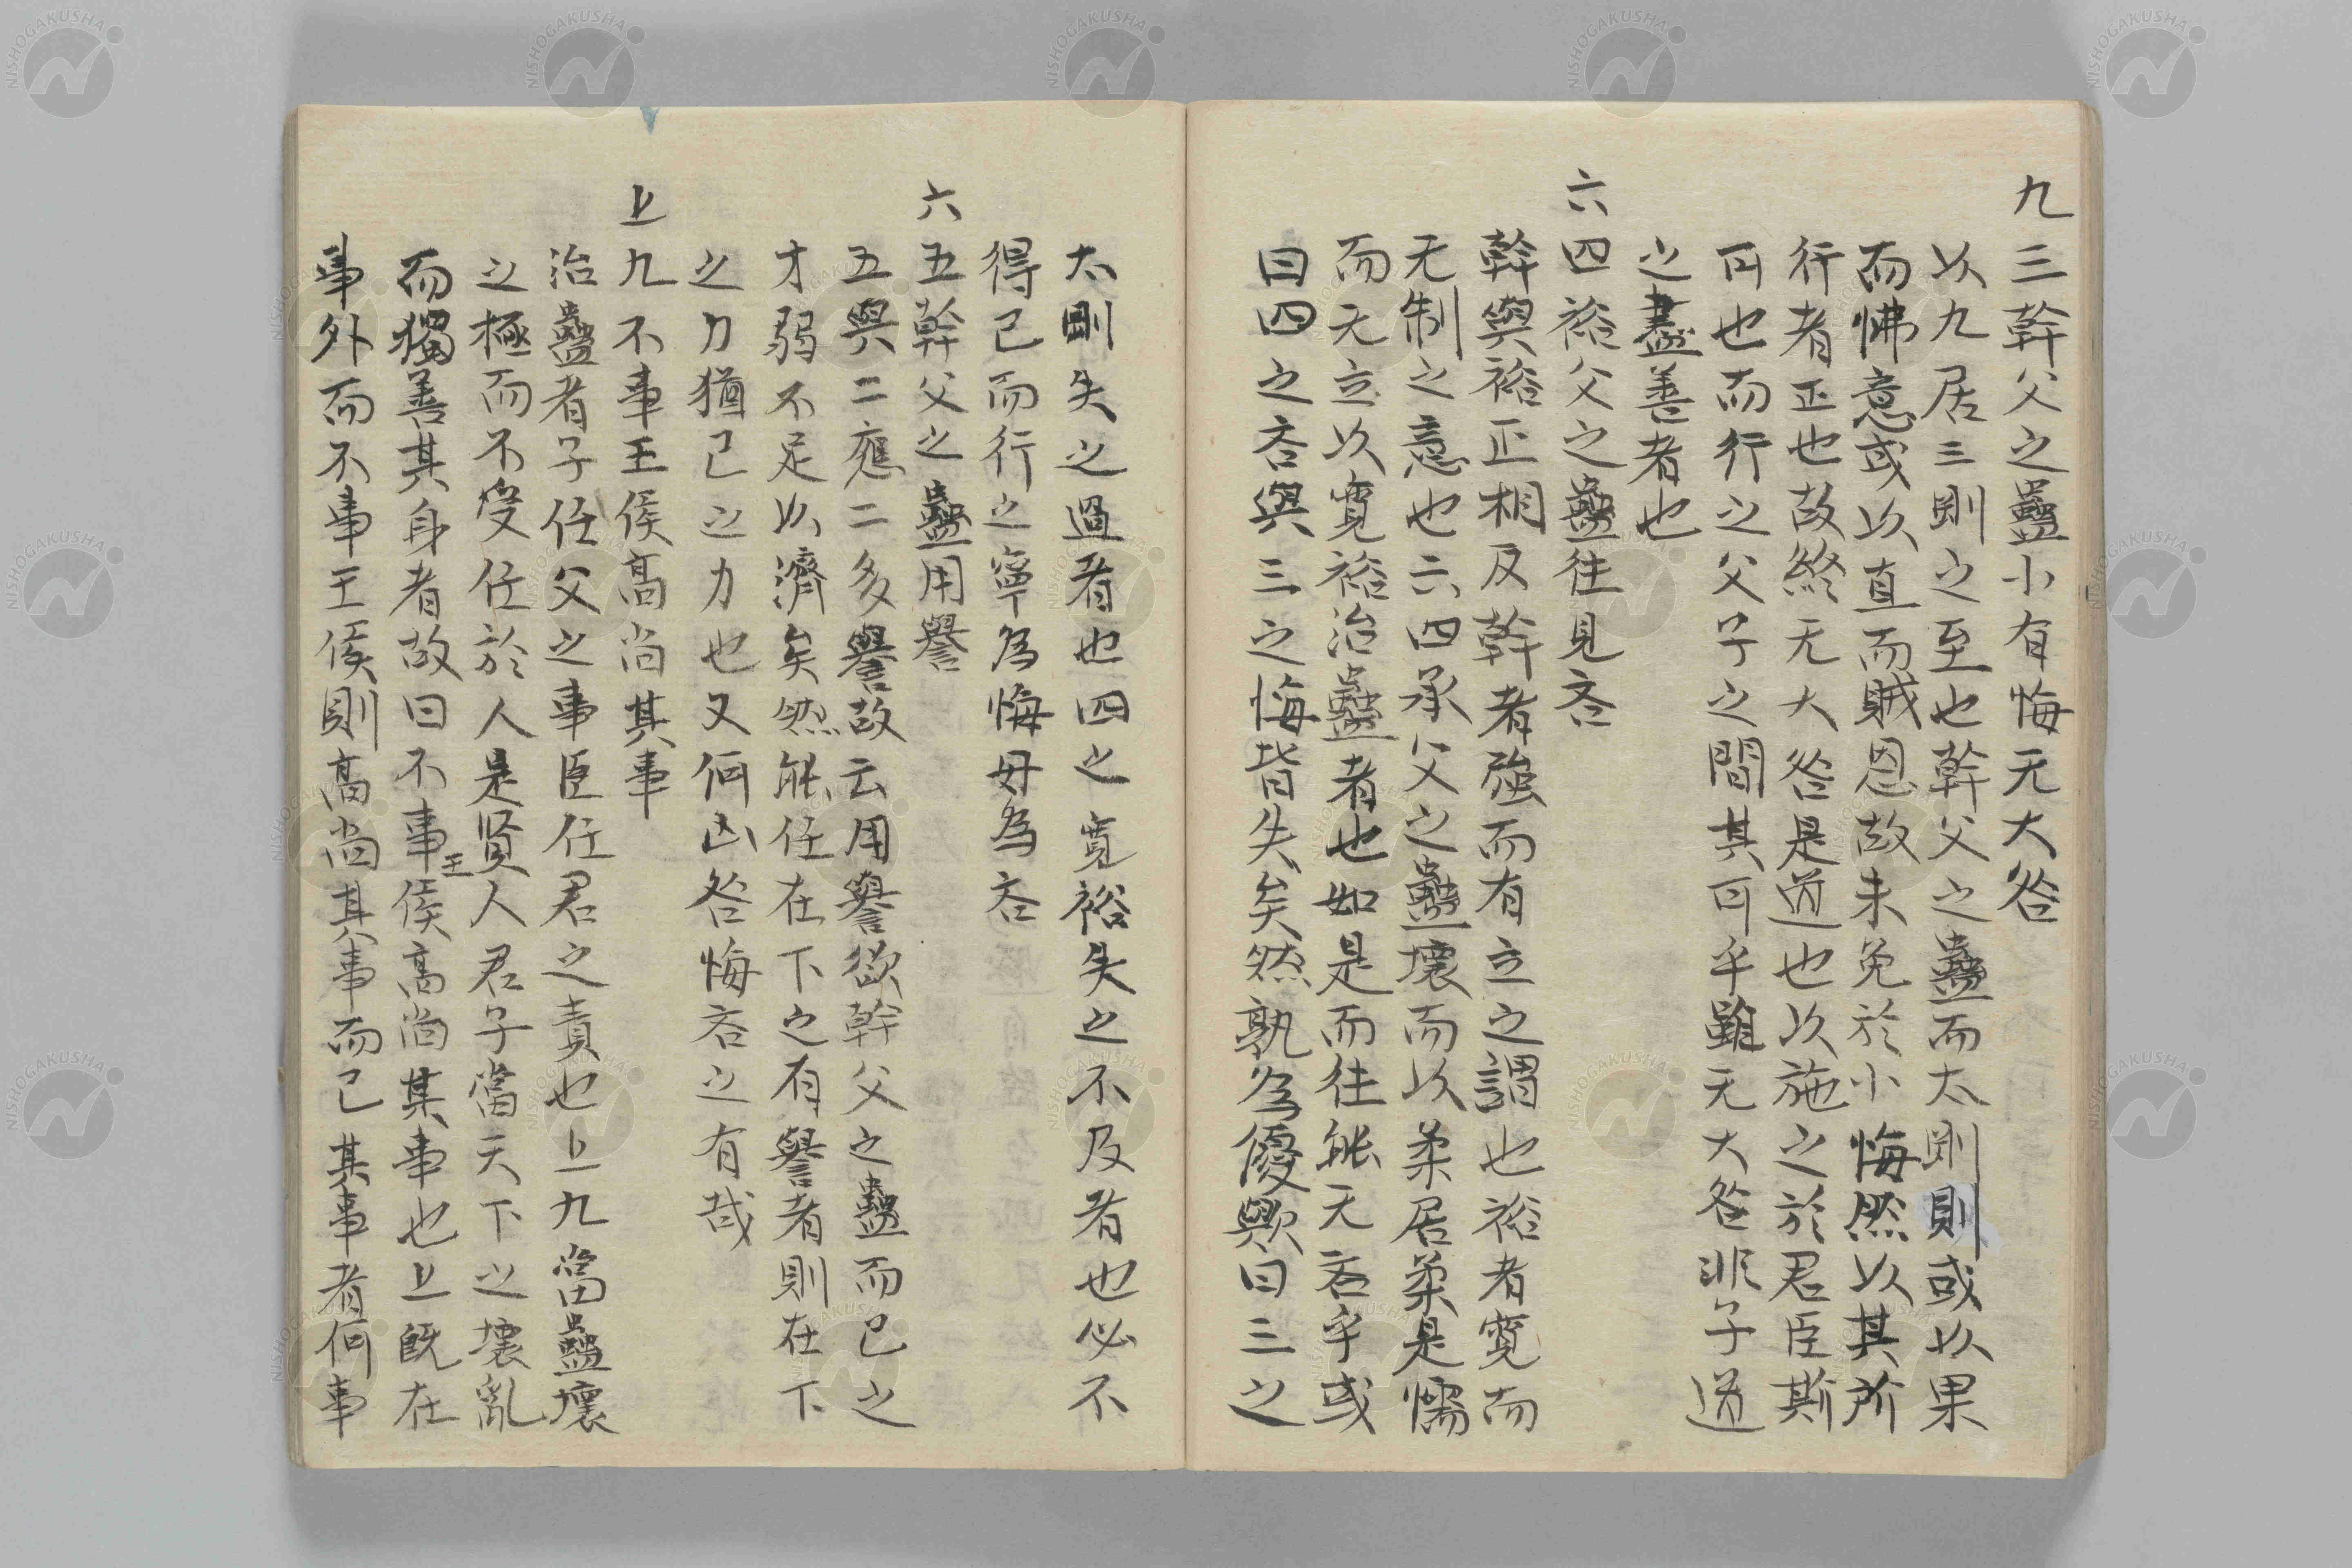 九三幹父之蠱小有悔无大咎
以九居三剛之至也幹父之蠱而太剛則或以果
而怫意或以直而賊恩故未免於小悔然以其所
行者正也故終无大咎是道也以施之於君臣斯
可也而行之父子之間其可乎雖无大咎非子道
之盡善者也
六四裕父之蠱往見吝
幹與裕正相反幹者強而有立之謂也裕者寛而
无制之意也六四承父之蠱壞而以柔居柔是懦
而无立以寛裕治蠱者也如是而往能无吝乎或
曰四之吝與三之悔皆失矣然孰為優歟曰三之
太剛失之過者也四之寛裕失之不及者也必不
得已而行之寧為悔毋為吝
六五幹父之蠱用譽
五與二應二多譽故云用譽欲幹父之蠱而已之
才弱不足以濟矣然能任在下之有譽者則在下
之力猶己之力也又何凶咎悔吝之有哉
上九不事王侯高尚其事
治蠱者子任父之事臣任君之責也上九當蠱壞
之極而不受任於人是賢人君子當天下之壞亂
而獨善其身者故曰不事王侯高尚其事也上既在
事外而不事王侯則高尚其事而已其事者何事